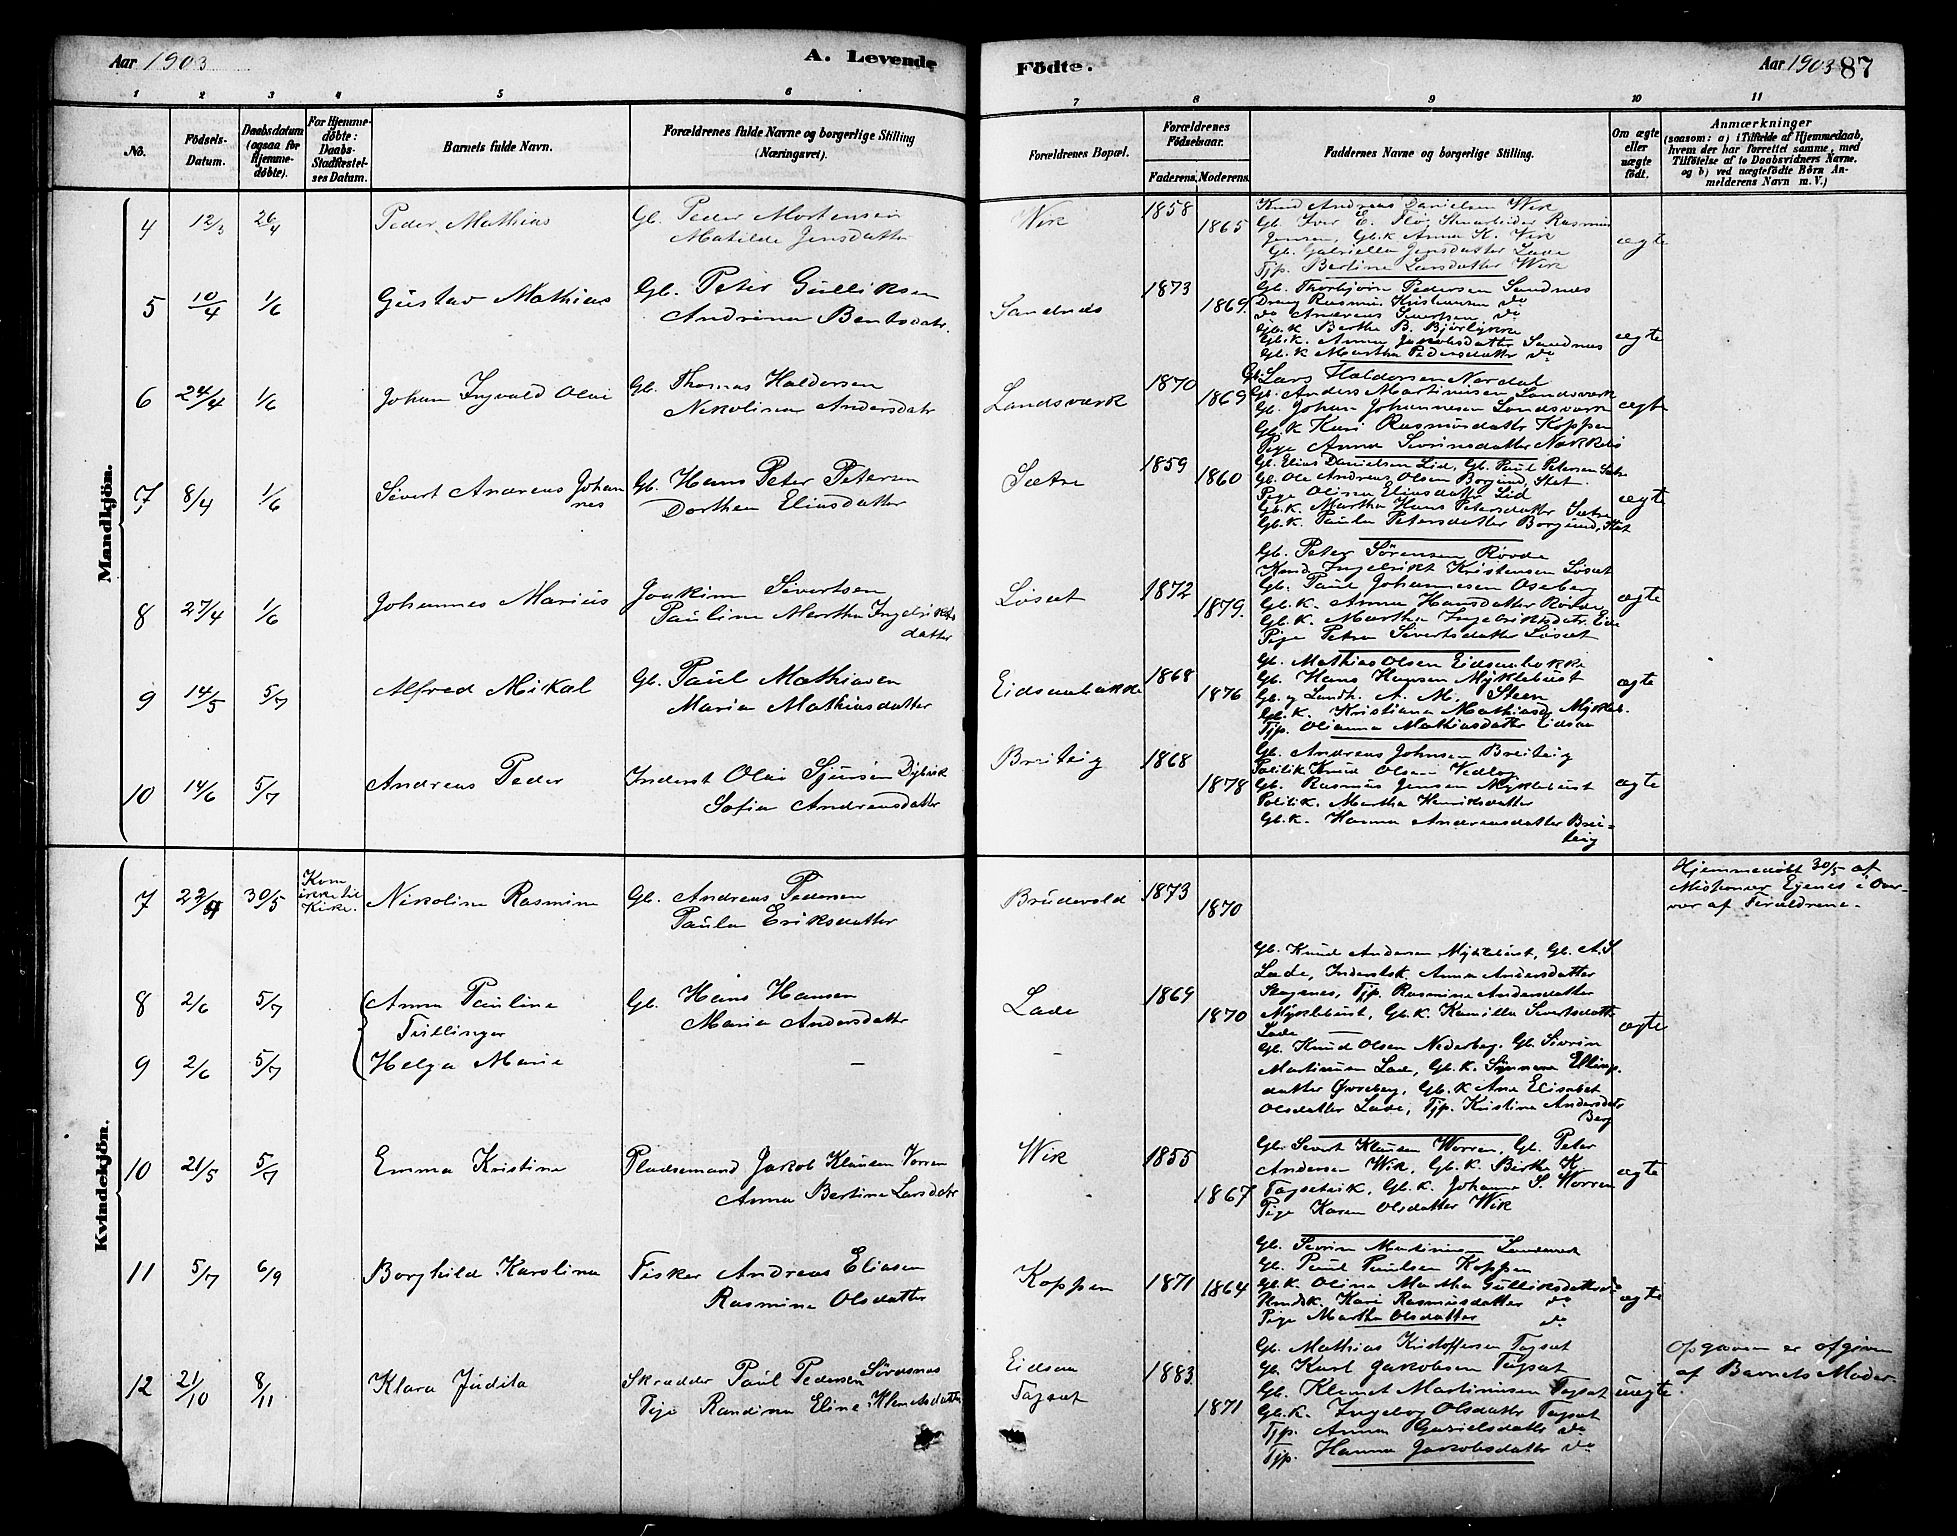 Aar 1903
A. Levende
Födte.
Aar 1903 87
1 2 3 4 5 6 7 8 9 10 11
No.
Födsels-
Datum.
Daabsdatum
(ogsaa for
Hjemme-
döbte).
For Hjemme-
döbte:
Daabs-
Stadfæstel-
ses Datum.
Barnets fulde Navn.
Forældrenes fulde Navne og borgerlige Stilling
(Næringsvei).
Forældrenes Bopæl.
Forældrenes
Födselsaar.
Faderens. Moderens.
Faddernes Navne og borgerlige Stilling.
Om ægte
eller
uægte
födt.
Anmærkninger
(saasom: a) i Tilfælde af Hjemmedaab,
hvem der har forrettet samme, med
Tilföielse af to Daabsvidners Navne.
og b) ved uægtefödte Börn An-
melderens Navn m. V.)
Mandkjön.
4 12/3 26/4 Peder Mathias
Gb. Peder Mortensen
Matilde Jensdatter
Wik 1858 1865
Knud Andreas Danielsen Wik
Gb. Iver E. Flø, Stenarbeider Rasmus
Jensen, Gb.k. Anna K. Wik
Gb. Gabriella Jensdatter Lade
Tjp. Bertine Larsdatter Wik
ægte
5 10/4 1/6 Gustav Mathias
Gb. Peter Gulliksen
Andrina Bentsdatr.
Sandnæs 1873 1869.
Gb. Thorbjörn Pedersen Sandnæs
Dreng Rasmus Kristiansen do
do Andreas Sivertsen do
Gb.k. Berthe B. Bjørlykke
Gb.k. Anna Jakobsdatter Sandnæs
Gb.k Martha Pedersdatter do
ægte
6 24/4 1/6 Johan Ingvald Olai
Gb. Thomas Haldorsen
Nikolina Andersdatr
Landsværk 1870 1869
Gb. Lars Haldorsen Nordal
Gb. Anders Martinusen Landsværk
Gb. Johan Johannesen Landsværk
Gb.k Kari Rasmusdatter Koppen
Pige Anna Sevrinsdatter Nakkebö
ægte
7 8/4 1/6 Sivert Andreas Johan
nes
Gb. Hans Peter Petersen
Dorthea Eliasdatter
Sætre 1859 1860
Gb. Elias Danielsen Lid, Gb. Paul Petersen Sætre
Gb. Ole Andreas Olsen Borgund, Stat.
Pige Olina Eliasdatter Lid
Gb.k. Martha Hans Petersdatter Sætre
Gb.k. Paula Petersdatter Borgund, Stat
ægte
8 27/4 1/6 Johannes Marius
Joakim Sivertsen
Pauline Martha Ingebrikts
datter
Løset 1872 1879.
Gb. Peter Sørensen Røvde
Knud Ingebrikt Kristensen Løset
Gb. Paul Johannesen Oseberg
Gb.k. Anna Hansdatter Røvde
Gb.k. Martha Ingebriktsdatr. Eide
Pige Petra Sivertsdatter Løset
ægte
9 14/5 5/7 Alfred Mikal
Gb. Paul Mathiasen
Maria Mathiasdatter
Eidsaabakke 1868 1876
Gb. Mathias Olsen Eidsaabakke
Gb. Hans Hansen Myklebust
Gb. og Landh. A. M. Steen
Gb.k. Kristiana Mathiasd. Mykleb.
Tjp. Olianna Mathiasdatter Eidsaa
ægte
10 14/6 5/7 Andreas Peder
Inderst Olai Sjursen Dybvik
Sofia Andreasdatter
Breiteig 1868 1878
Gb. Andreas Johnsen Breiteig
Politik Knud Olsen Vedlog
Gb. Rasmus Jensen Myklebust
Politik. Martha Henriksdatter
Gb.k. Hanna Andreasdatter Brei-
teig
ægte
Kvindekjön.
7 22/4 30/5 Kom
ikke til
Kirke.
Nikoline Rasmine
Gb. Andreas Pedersen
Paula Eriksdatter
Brudevold 1873 1870
Hjemmedøbt 30/5 af
Missionær Ejenes i Over-
vær af Foreldrene.
8 2/6 5/7 Anna Pauline
Tullinger
Gb. Hans Hansen
Maria Andersdatter
Lade 1869 1870
Gb. Knud Andersen Myklebust, Gb. A. S
Lade, Inderstsk. Anna Andersdatter
Skognes, Tjp. Rasmine Andersdatter
Myklebust, Gb.k. Kamilla Sivertsdattr
Lade
ægte
9 2/6 5/7 Helga Marie
–
Gb. Knud Olsen Nederberg, Gb. Sivrin
Martinusen Lade, Gb.k. Synneva Elling-
datter Øvreberg, Gb.k Ane Elisabet
Olsdatter Lade, Tjp. Kristina Andersdatr
Berg
10 21/5 5/7 Emma Kristine
Pladsemand Jakob Klausen Vorren
Anna Bertine Larsdatr
Wik 1855 1867
Gb. Sivert Klausen Worren, Gb. Peter
Andersen Wik, Gb.k. Birthe K.
Tagsetvik, Gb.k. Johanne S. Worren
Pige Karen Olsdatter Wik
ægte
11 5/7 6/9 Borghild Karolina
Fisker Andreas Eliasen
Rasmine Olsdatter
Koppen 1871 1864
Gb. Sevrin Martinusen Landsværk
Gb. Paul Paulsen Koppen
Gb.k. Olina Martha Gulliksdatter do
Kundsk. Kari Rasmusdatter do
Pige Martha Olsdatter do
ægte
12 21/10 8/11 Klara Judita
Skrædder Paul Pedersen Sördsnes
Pige Randina Eline Klemetsdatter
Eidsaa
Tagset
1883. 1871
Gb. Mathias Kristoffersen Tagset
Gb. Karl Jakobsen Tagset
Gb. Klemet Martinusen Tagset
Gb.k. Ingebor Olsdatter Tagset
Tjp. Anna Gurielsdatter do
Tjp. Hanna Jakobsdatter do
uægte
Opgaven er afgiven
af Barnets Moder.